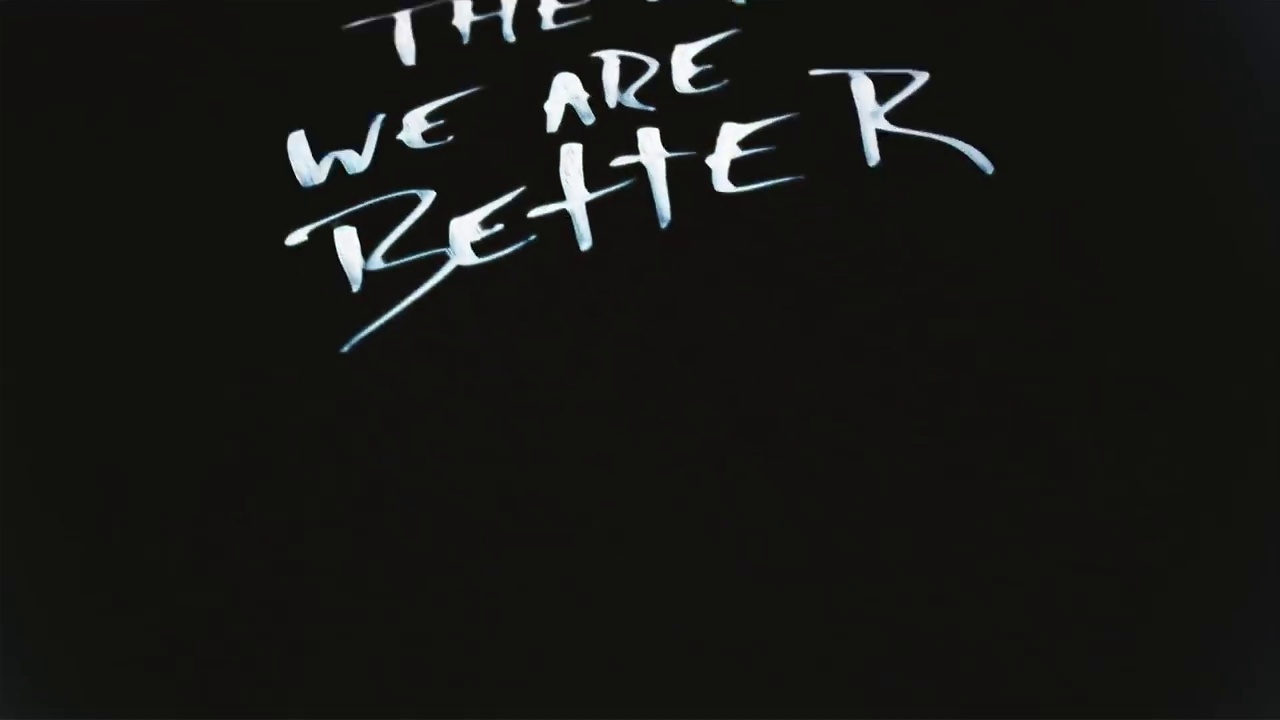 THE
WE ARE
BEttER